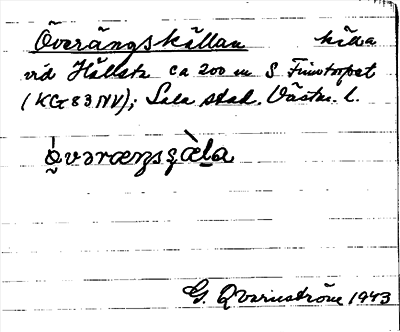 Överängskällan källa
vid Hållsta ca 200 m S Finntorpet
(KG 83 NV); Sala stad. Västm. l.
G. Qvarnström 1943